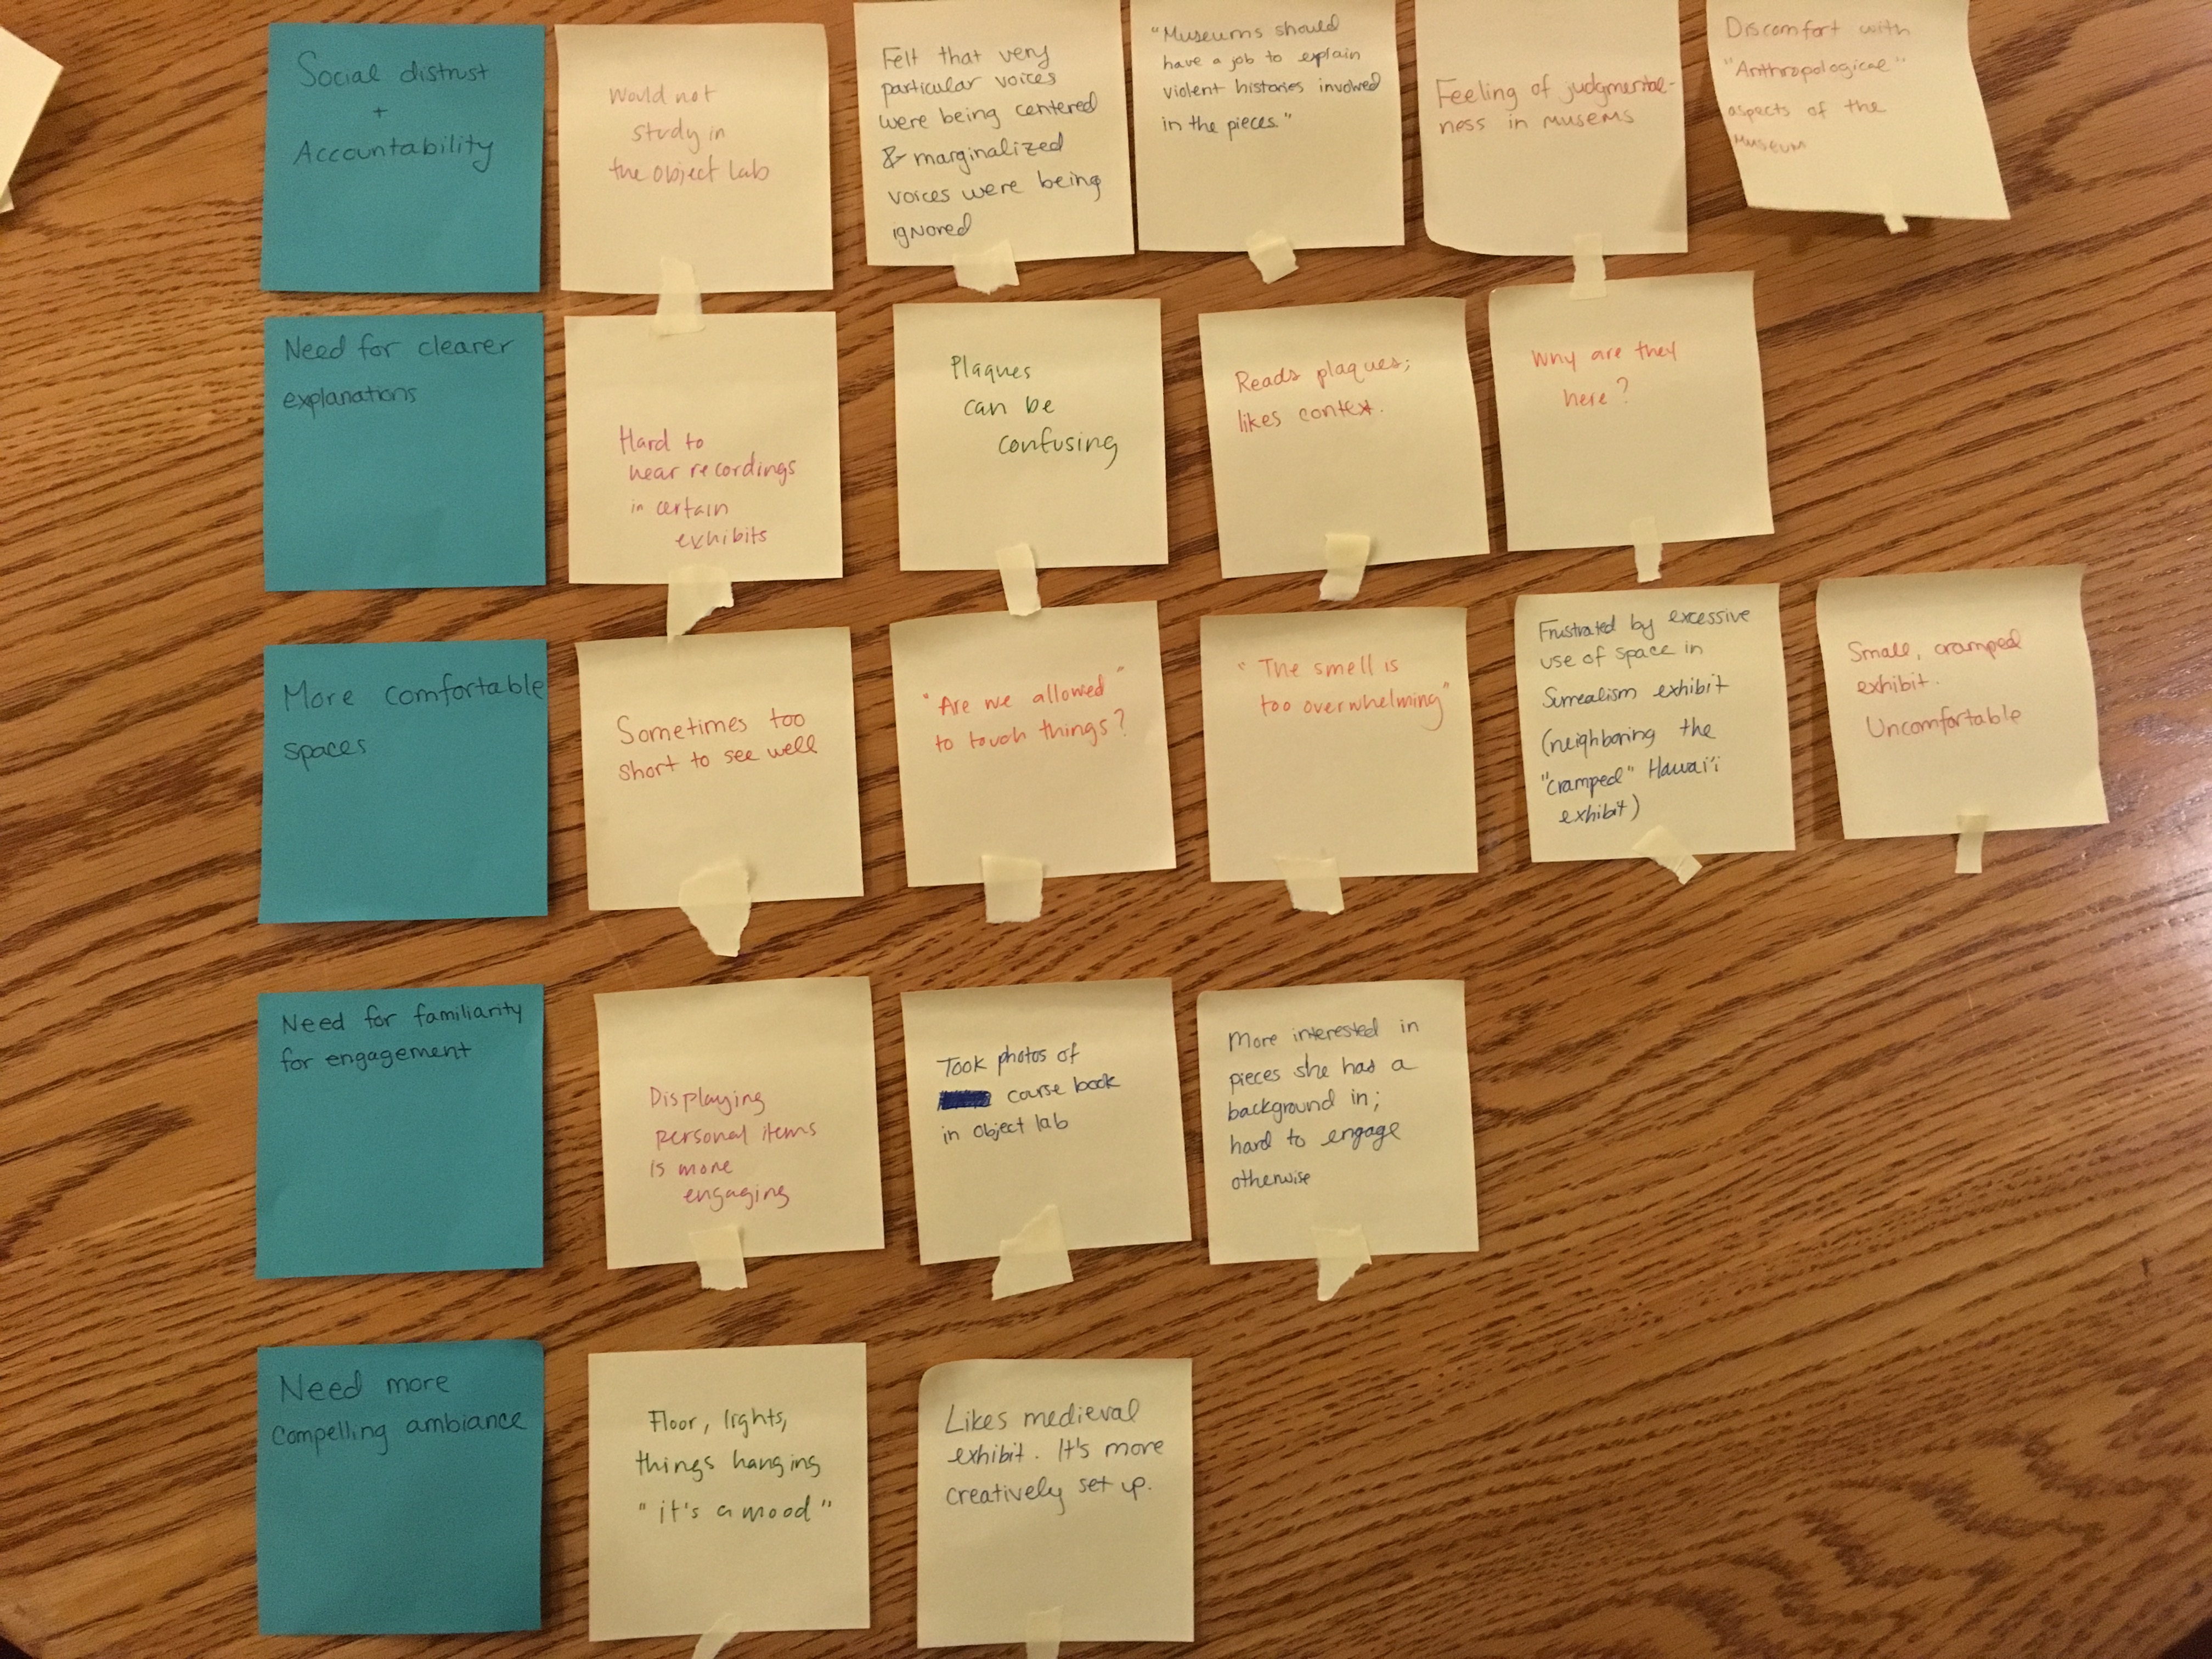 Social distrust
+
Accountability
Would not
study in
the object lab
Felt that very
particular voices
were being centered
& marginalized
voices were being
ignored
"Museums should
have a job to explain
violent histories involved
in the pieces."
Feeling of judgmental-
ness in musems
Discomfort with
"Anthropological"
aspects of the
Museum
Need for clearer
explanations
Hard to
hear recordings
in certain
exhibits
Plaques
can be
confusing
Reads plaques;
likes context.
Why are they
here?
More comfortable
spaces
Sometimes too
short to see well
"Are we allowed"
to touch things?
"The smell is
too overwhelming"
Frustrated by excessive
use of space in
Surrealism exhibit
(neighboring the
"cramped" Hawai'i
exhibit)
Small, cramped
exhibit.
Uncomfortable
Need for familiarity
for engagement
Displaying
personal items
is more
engaging
Took photos of
course book
in object lab
More interested in
pieces she has a
background in;
hard to engage
otherwise
Need more
compelling ambiance
Floor, lights,
things hanging
"it's a mood"
Likes medieval
exhibit. It's more
creatively set up.